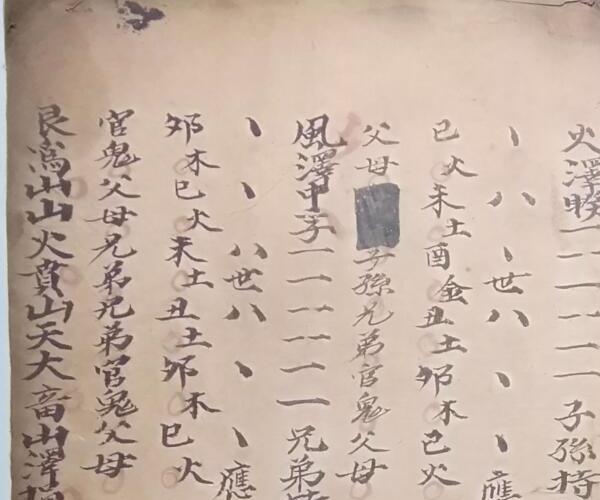 火澤睽一一一一一一子孫持
丶八丶世八丶丶應
巳火未土酉金丑土夘木巳火
父母子孫兄弟官鬼父母
風澤中孚一一一一一一兄弟
丶丶八世八丶丶應
夘木巳火未土丑土夘木巳火
官鬼父母兄弟兄弟官鬼父母
艮爲山山火賁山天大畜山澤